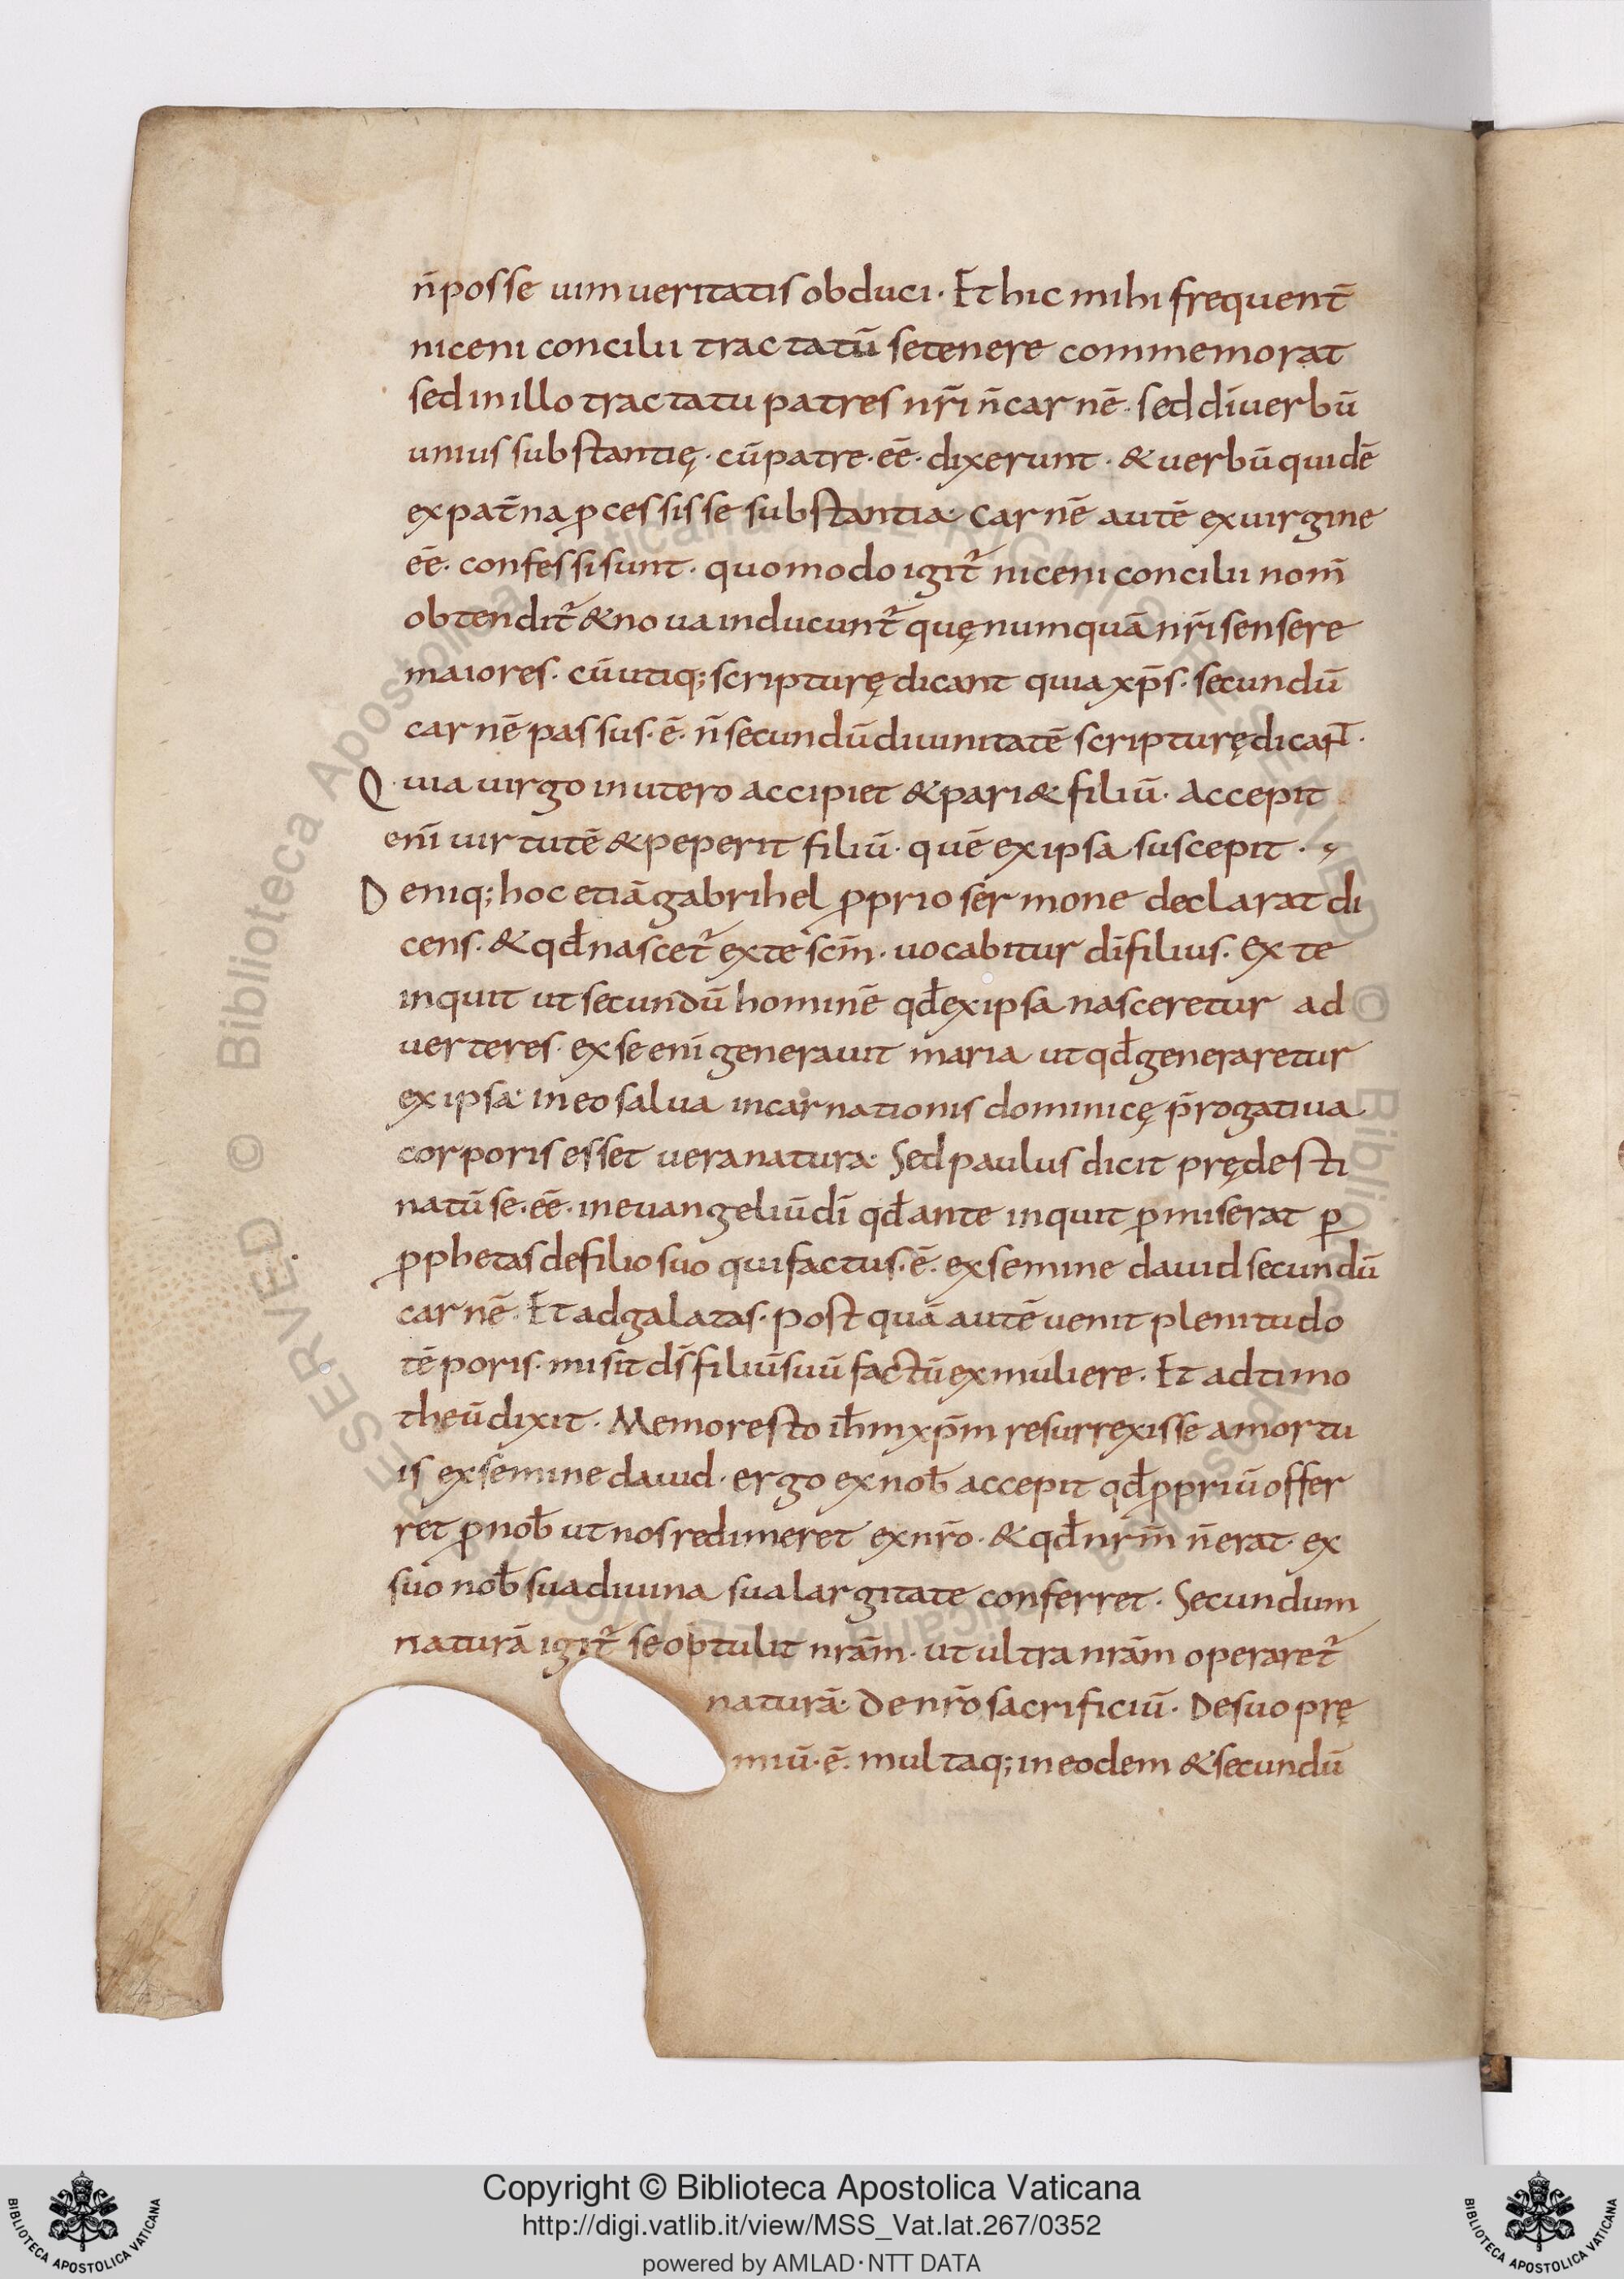 n̄posse uim ueritatis obduci · Et hic mihi frequent̄
niceni concilii tractatū se tenere commemorat
sed in illo tractatu patres nr̄i n̄ carnē · sed dī uerbū
unius substantię · cū patre · eē · dixerunt · & uerbū quidē
ex pat̄na ꝓcessisse substantia · Carnē autē ex uirgine
eē · confessi sunt · quomodo igit᷑ niceni concilii nom̄
obtendit᷑ & noua inducunt᷑ quę numquā nr̄i sensere
maiores · cū utiq; scripturę dicant quia xp̄s · secundū
carnē passus · ē · n̄ secundū diuinitatē scripturę dicant ·
Quia uirgo in utero accipiet & pari& filiū · Accepit
enī uirtutē & peperit filiū · quē ex ipsa suscepit ·
Deniq; hoc etiā gabrihel ꝓprio sermone declarat di
cens · & qđ nascet᷑ ex te sc̄m · uocabitur dī filius · Ex te
inquit ut secundū hominē qđ ex ipsa nasceretur ad
uerteres · ex se enī generauit maria ut qđ generaretur
ex ipsa · in eo salua incarnationis dominicę p̄rogatiua
corporis esset uera natura · Sed paulus dicit prędesti
natū se · eē · in euangeliū dī qđ ante inquit ꝓmiserat ꝑ
ꝓphetas de filio suo qui factus · ē · ex semine dauid secundū
carnē · Et ad galatas · postquā autē uenit plenitudo
tēporis · misit dс̄ filiū suū factū ex muliere · Et ad timo
theū dixit · Memor esto ih̄m xp̄m resurrexisse a mortu
is ex semine dauid · ergo ex nob̄ accepit qđ ꝓpriū offer
ret ꝓ nob̄ ut nos redimeret ex nr̄o · & qđ nrm̄ n̄ erat · ex
suo nob̄ sua diuina sua largitate conferret · Secundum
naturā igit᷑ se optulit nrām · ut ultra nrām operaret᷑
naturā · De nr̄o sacrificiū · De suo prę
miū · ē · multaq; in eodem & secundū
Copyright © Biblioteca Apostolica Vaticana
http://digi.vatlib.it/view/MSS_Vat.lat.267/0352
powered by AMLAD · NTT DATA
BIBLIOTECA APOSTOLICA VATICANA
BIBLIOTECA APOSTOLICA VATICANA